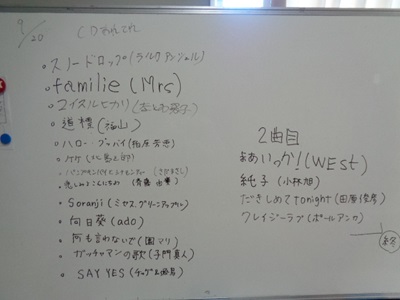 9/20 CDそれぞれ
・スノードロップ(ラルクアンシエル)
・familie (Mrs)
・コイスルヒカリ(
・道標(福山)
・ハロー・グッバイ(柏原芳恵)
・ケケ(
・悲しみよこんにちわ(斉藤由貴)
・Soranji(ミセスグリーンアップル)
・向日葵(ado)
・何も言わないで(園マリ)
・ガッチャマンの歌(子門真人)
・SAY YES(チャゲ&飛鳥)
2曲目
まあいっか!(WESt)
純子(小林旭)
だきしめてtonight(田原俊彦)
クレイジーラブ(ポールアンカ)
終